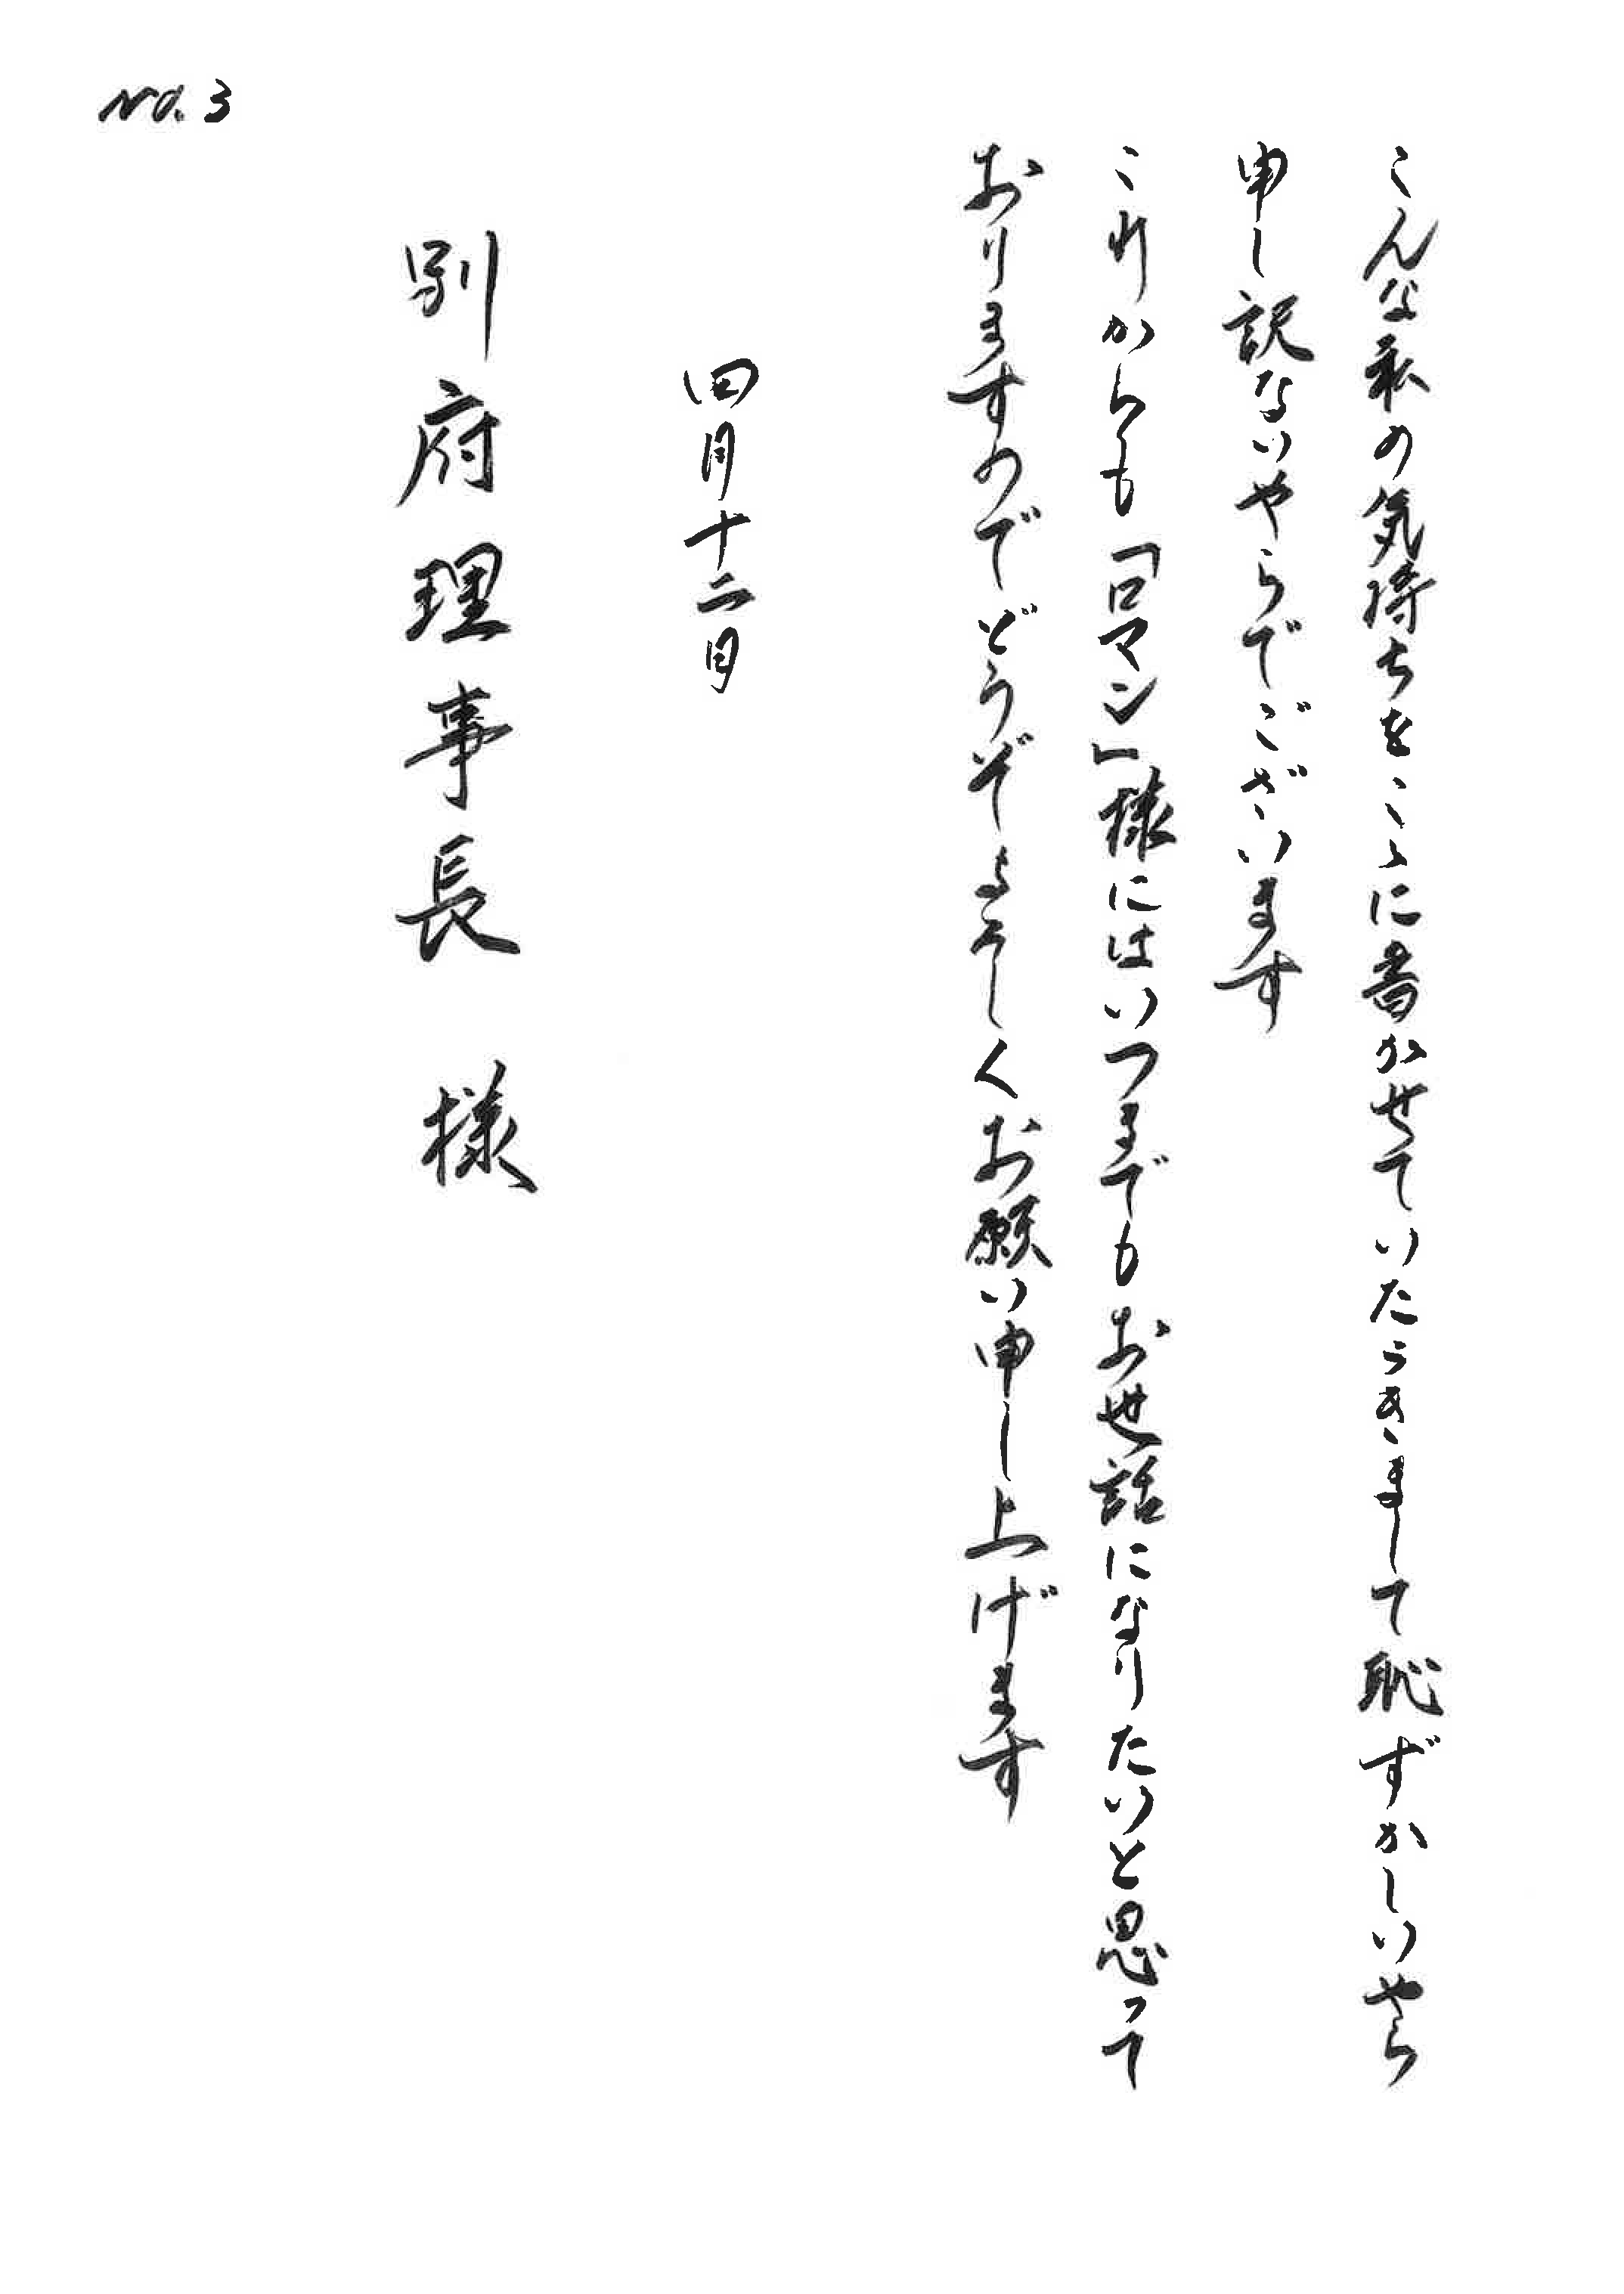 No.3
こんな私の気持ちをこゝに書かせていたゞきまして恥ずかしいやら
申し訳ないやらでございます
これからも「ロマン」様にはいつまでもお世話になりたいと思って
おりますのでどうぞよろしくお願い申し上げます
四月十二日
別府理事長 様